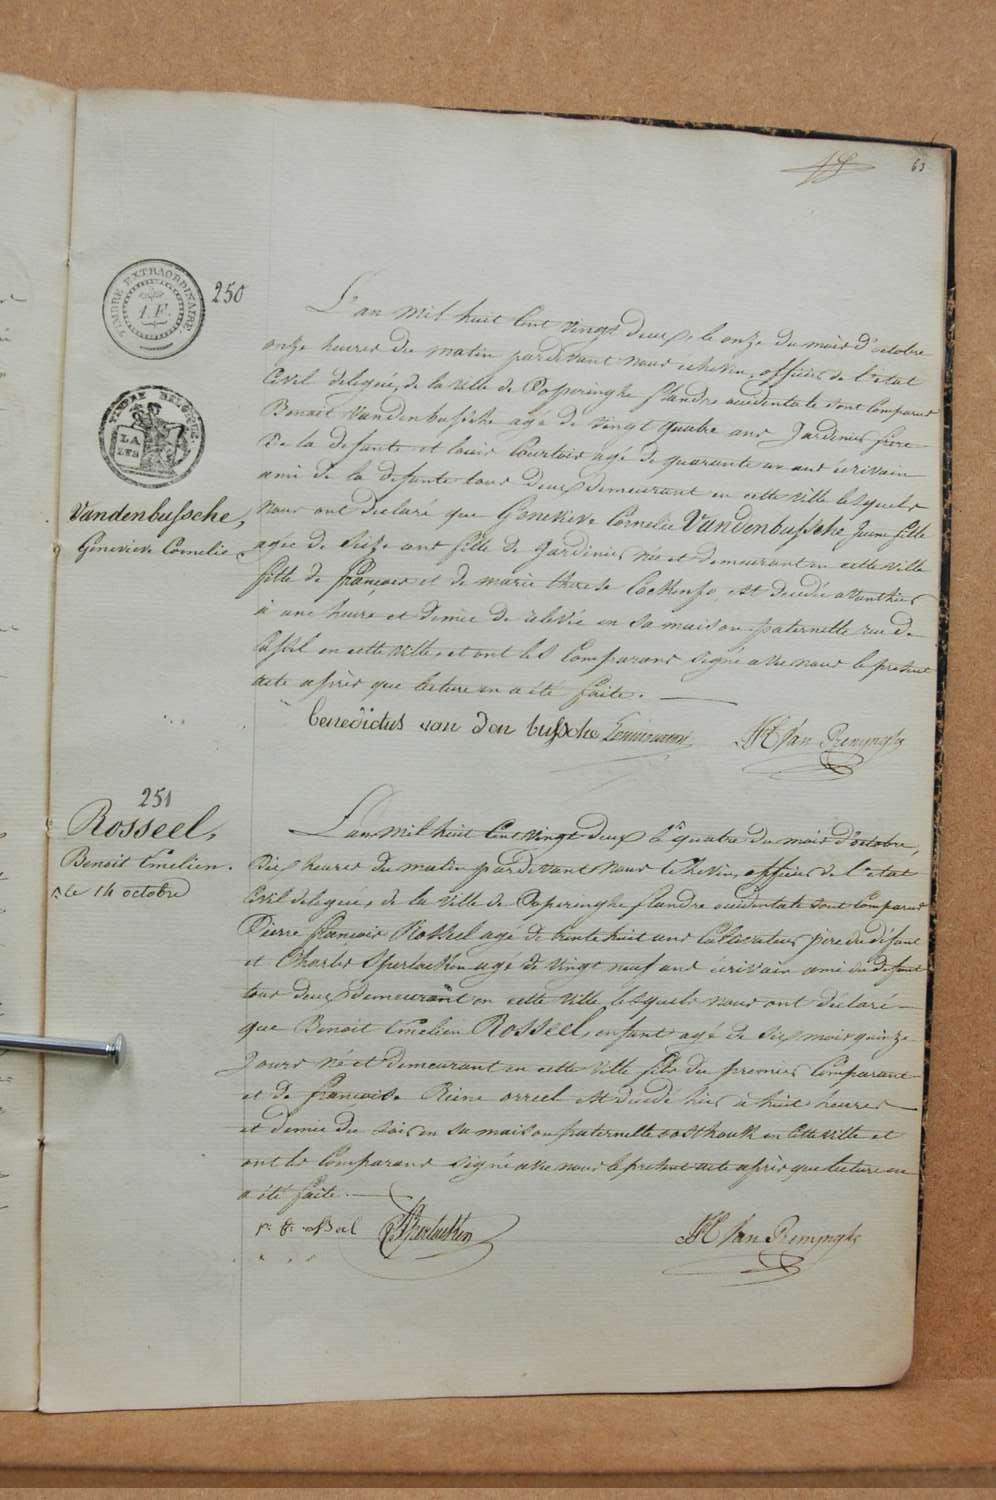 63
TIMBRE EXTRAORDINAIRE.
1.F.
250
L'an mil huit Cent vingt deux, le onze du mois d'octobre
onze heures du matin pardevant nous échevin, officier de l'etat
Civil delegué, de la ville de Poperinghe flandre occidentale sont Comparus
Benoit Vandenbussche agé de vingt quatre ans Jardinier frère
TIMBRE BELGIQUE
LA
de la defunte et louis Courtois agé de quarante un ans écrivain
ami de la defunte tous deux demeurant en cette ville lesquels
Vandenbussche,
Genevieve Cornelie
nous ont déclaré que Genevieve Cornelie Vandenbussche Jeune fille
agée de seize ans fille de Jardinier née et demeurant en cette ville
fille de françois et de marie therese est decedée avanthier
à une heure et demie de relevée en sa maison paternelle rue de
Cassel en cette ville, et ont les Comparans signé avec nous le present
acte après que lecture en a été faite.
benedictus van den bussche
251
Rosseel,
Benoit Emelien.
le 14 octobre
L'an mil huit Cent vingt deux le quatre du mois d'octobre,
dix heures du matin pardevant nous echevin, officier de l'etat
Civil delegué, de la ville de Poperinghe flandre occidentale sont Comparus
Pierre françois Rosseel agé de trente huit ans Cultivateur père du défunt
et Charles Sperlaeken agé de vingt neuf ans écrivain ami du defunt
tous deux demeurant en cette ville, lesquels nous ont déclaré
que Benoit Emelien Rosseel, enfant agé de six mois quinze
Jours né et demeurant en cette ville fils du premier Comparant
et de francoise Reine est decedé hier à huit heures
et demie du soir en sa maison paternelle oosthouk en cette ville et
ont les Comparans signé avec nous le present acte après que lecture en
a été faite.